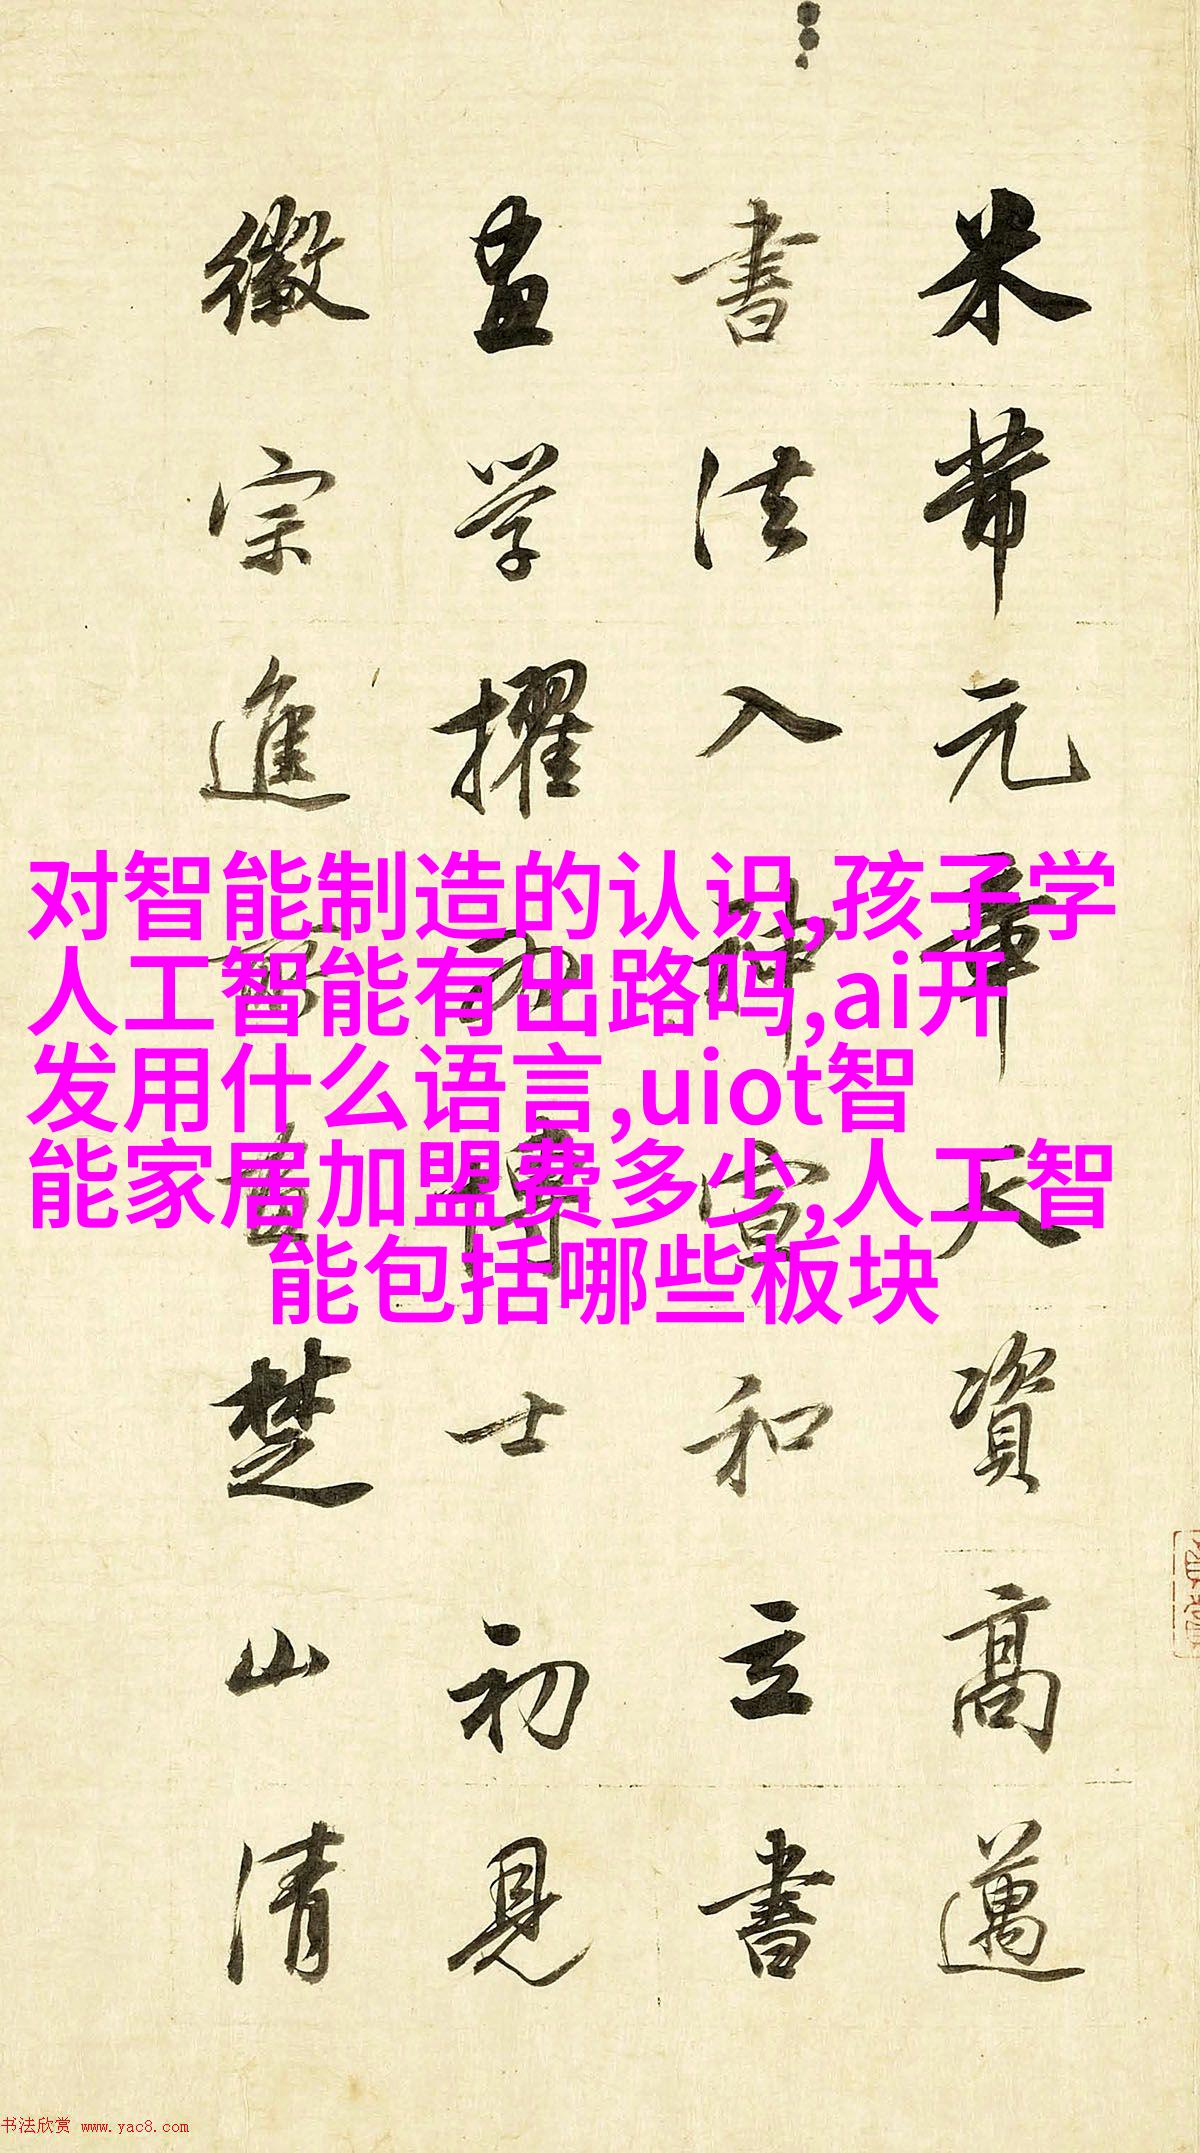 米芾元章天資高邁
書法入神宣和立書
畫学擢为博士初見
徽宗進所畫楚山清
对智能制造的认识,孩子学
人工智能有出路吗,ai开
发用什么语言,uiot智
能家居加盟费多少,人工智
能包括哪些板块
书法欣赏 www.yac8.com